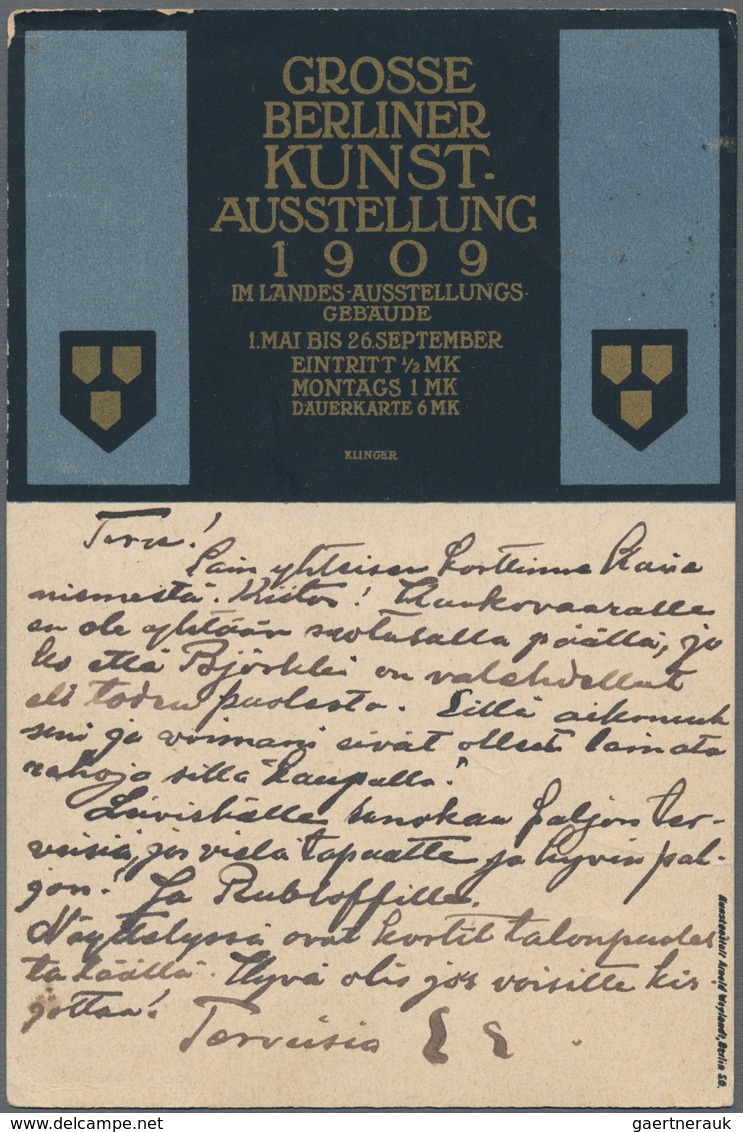 GROSSE
BERLINER
KUNST-
AUSSTELLUNG
1909
IM LANDES-AUSSTELLUNGS-
GEBÄUDE
1. MAI BIS 26. SEPTEMBER
EINTRITT ½ MK
MONTAGS 1 MK
DAUERKARTE 6 MK
KLINGER
Terve!
Sain yhteisen korttinne
niemestä. Kiitos!
en ole yhtään suotusalla päällä, jo
ko että on valehdellut
eli toden puolesta. Sillä aikomuk
seni ja voimani eivät olleet lainata
rahoja sillä kaupalla!
sanokaa paljon ter-
veisiä, jos vielä tapaatte ja hyvin pal-
jon! Ja Rubloffille.
Näyttelyssä ovat kortit talonpuoles
ta täällä. Hyvä olis jos voisitte kir-
jottaa!
Terveisiä
Kunstanstalt Arnold Weylandt, Berlin SO.
gaertnerauk